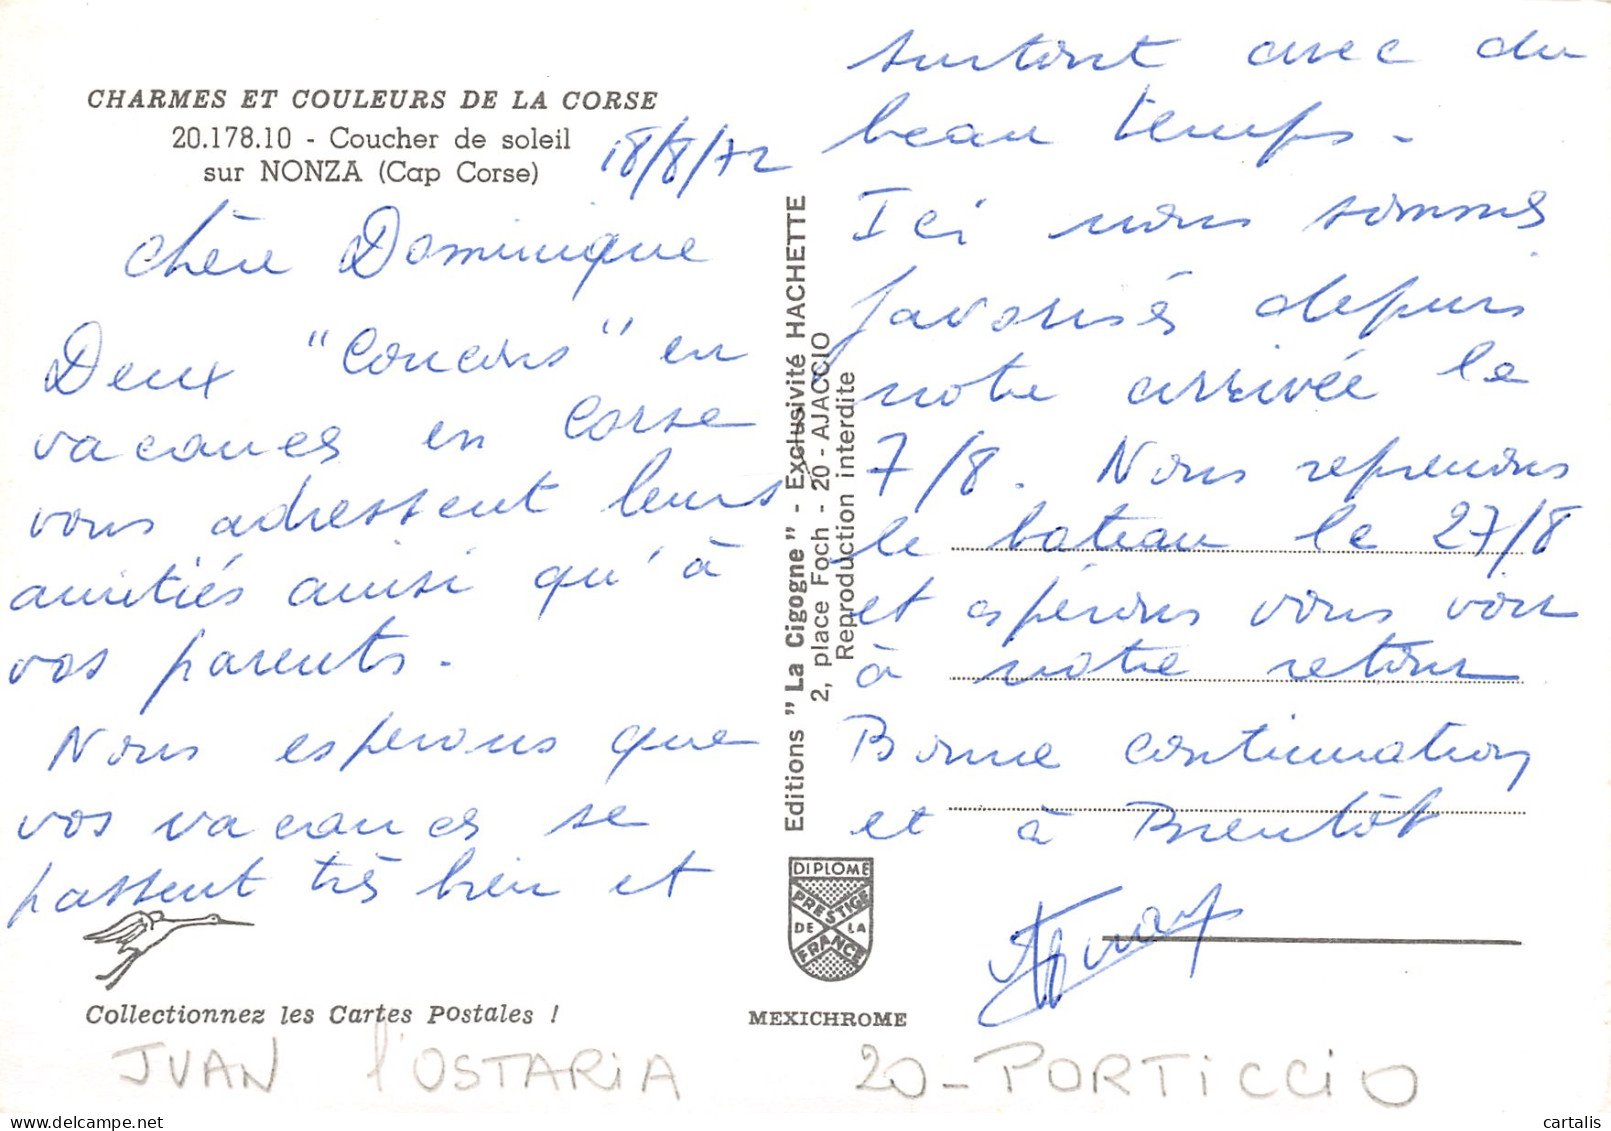 CHARMES ET COULEURS DE LA CORSE
20.178.10 - Coucher de soleil
sur NONZA (Cap Corse)
18/8/72
Chère Dominique
Deux "Coucous" en
vacances en Corse
vous adressent leurs
amitiés ainsi qu'à
vos parents.
Nous esperons que
vos vacances se
passent très bien et
Collectionnez les Cartes Postales !
Editions "La Cigogne" - Exclusivité HACHETTE
2, place Foch - 20 - AJACCIO
Reproduction interdite
DIPLOME
PRESTIGE
DE LA
FRANCE
MEXICHROME
surtout avec du
beau temps.
Ici nous sommes
favorisés depuis
notre arrivée le
7/8. Nous reprenons
le bateau le 27/8
et espérons vous voir
à notre retour
Bonne continuation
et à Bientôt
JUAN l'OSTARIA 20 - PORTICCIO
cartalis
www.delcampe.net